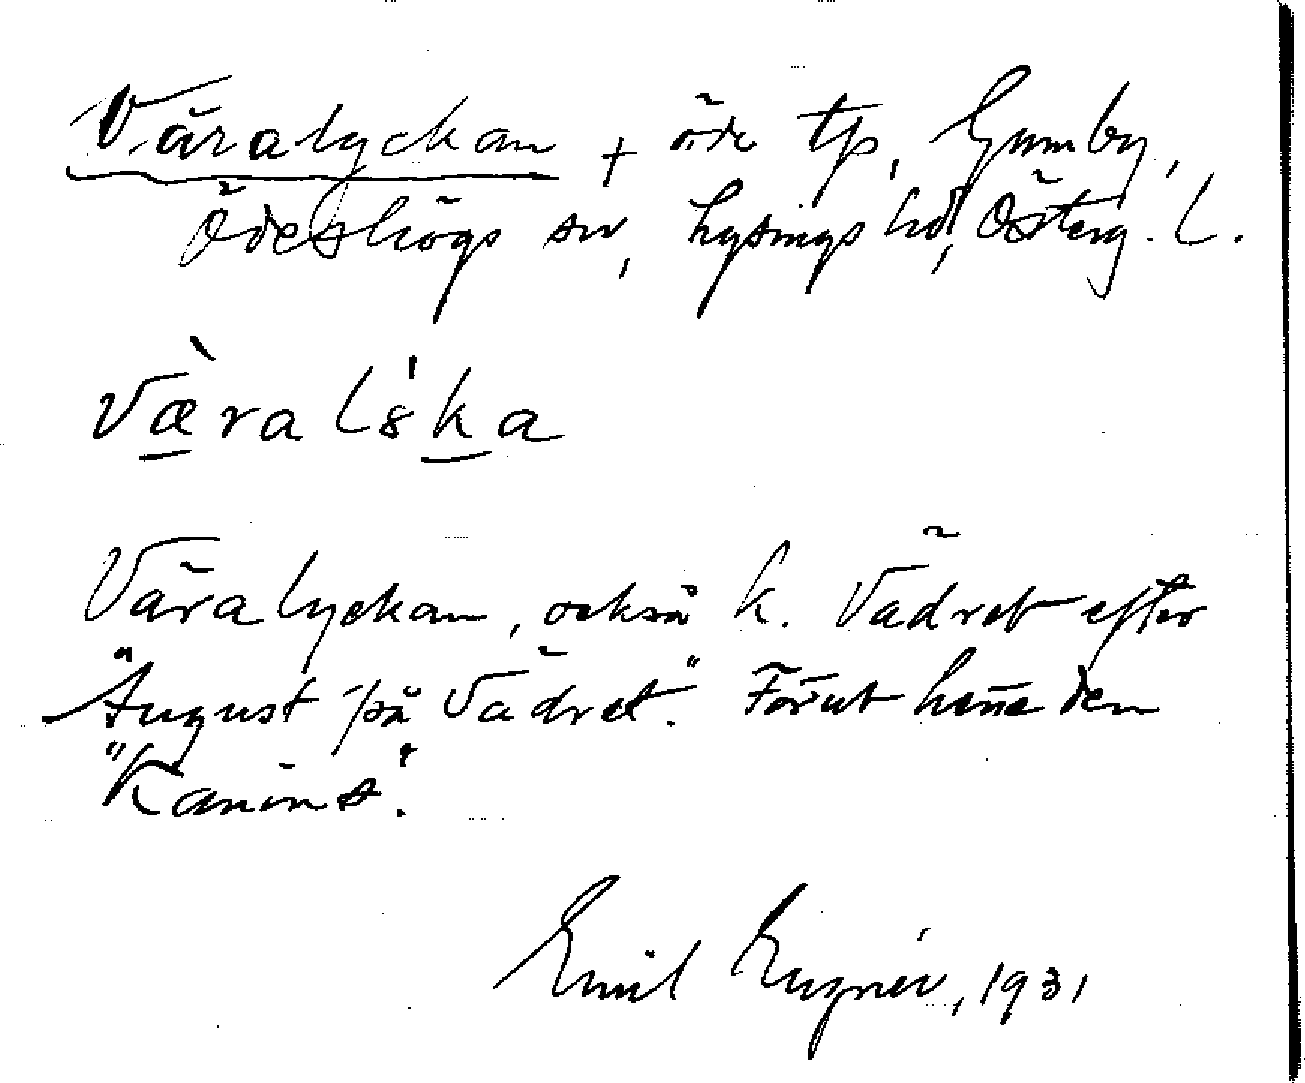 Väralyckan + öde tp, Gumby,
Ödeshögs sn, Lysings hd, Österg. l.
Væ̀ralẃka
Väralyckan, också k. Vädret efter
"August på Vädret." Förut hette den
"Kanins".
Emil Eugnér, 1931